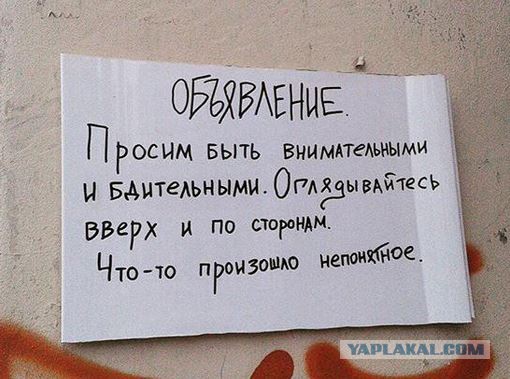 ОБЪЯВЛЕНИЕ.
Просим быть внимательными
и бдительными. Оглядывайтесь
вверх и по сторонам.
Что-то произошло непонятное.
YAPLAKAL.COM